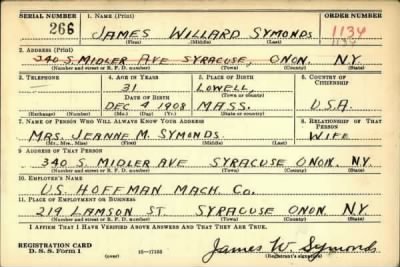 SERIAL NUMBER 1. NAME (Print) ORDER NUMBER
266 JAMES WILLARD SYMONDS 1134
(First) (Middle) (Last) 1134
2. ADDRESS (Print)
340 S. MIDLER AVE SYRACUSE, ONON. N.Y.
(Number and street or R. F. D. number) (Town) (County) (State)
3. TELEPHONE 4. AGE IN YEARS 5. PLACE OF BIRTH 6. COUNTRY OF CITIZENSHIP
31 LOWELL
DATE OF BIRTH (Town or county)
DEC 4 1908 MASS. U.S.A.
(Exchange) (Number) (Mo.) (Day) (Yr.) (State or country)
7. NAME OF PERSON WHO WILL ALWAYS KNOW YOUR ADDRESS 8. RELATIONSHIP OF THAT PERSON
MRS. JEANNE M. SYMONDS. WIFE
(Mr., Mrs., Miss) (First) (Middle) (Last)
9. ADDRESS OF THAT PERSON
340 S. MIDLER AVE SYRACUSE ONON. N.Y.
(Number and street or R. F. D. number) (Town) (County) (State)
10. EMPLOYER'S NAME
U.S. HOFFMAN MACH. CO.
11. PLACE OF EMPLOYMENT OR BUSINESS
219 LAMSON ST SYRACUSE ONON. N.Y.
(Number and street or R. F. D. number) (Town) (County) (State)
I AFFIRM THAT I HAVE VERIFIED ABOVE ANSWERS AND THAT THEY ARE TRUE.
REGISTRATION CARD
D. S. S. Form 1 (over) James W. Symonds
(Registrant's signature)